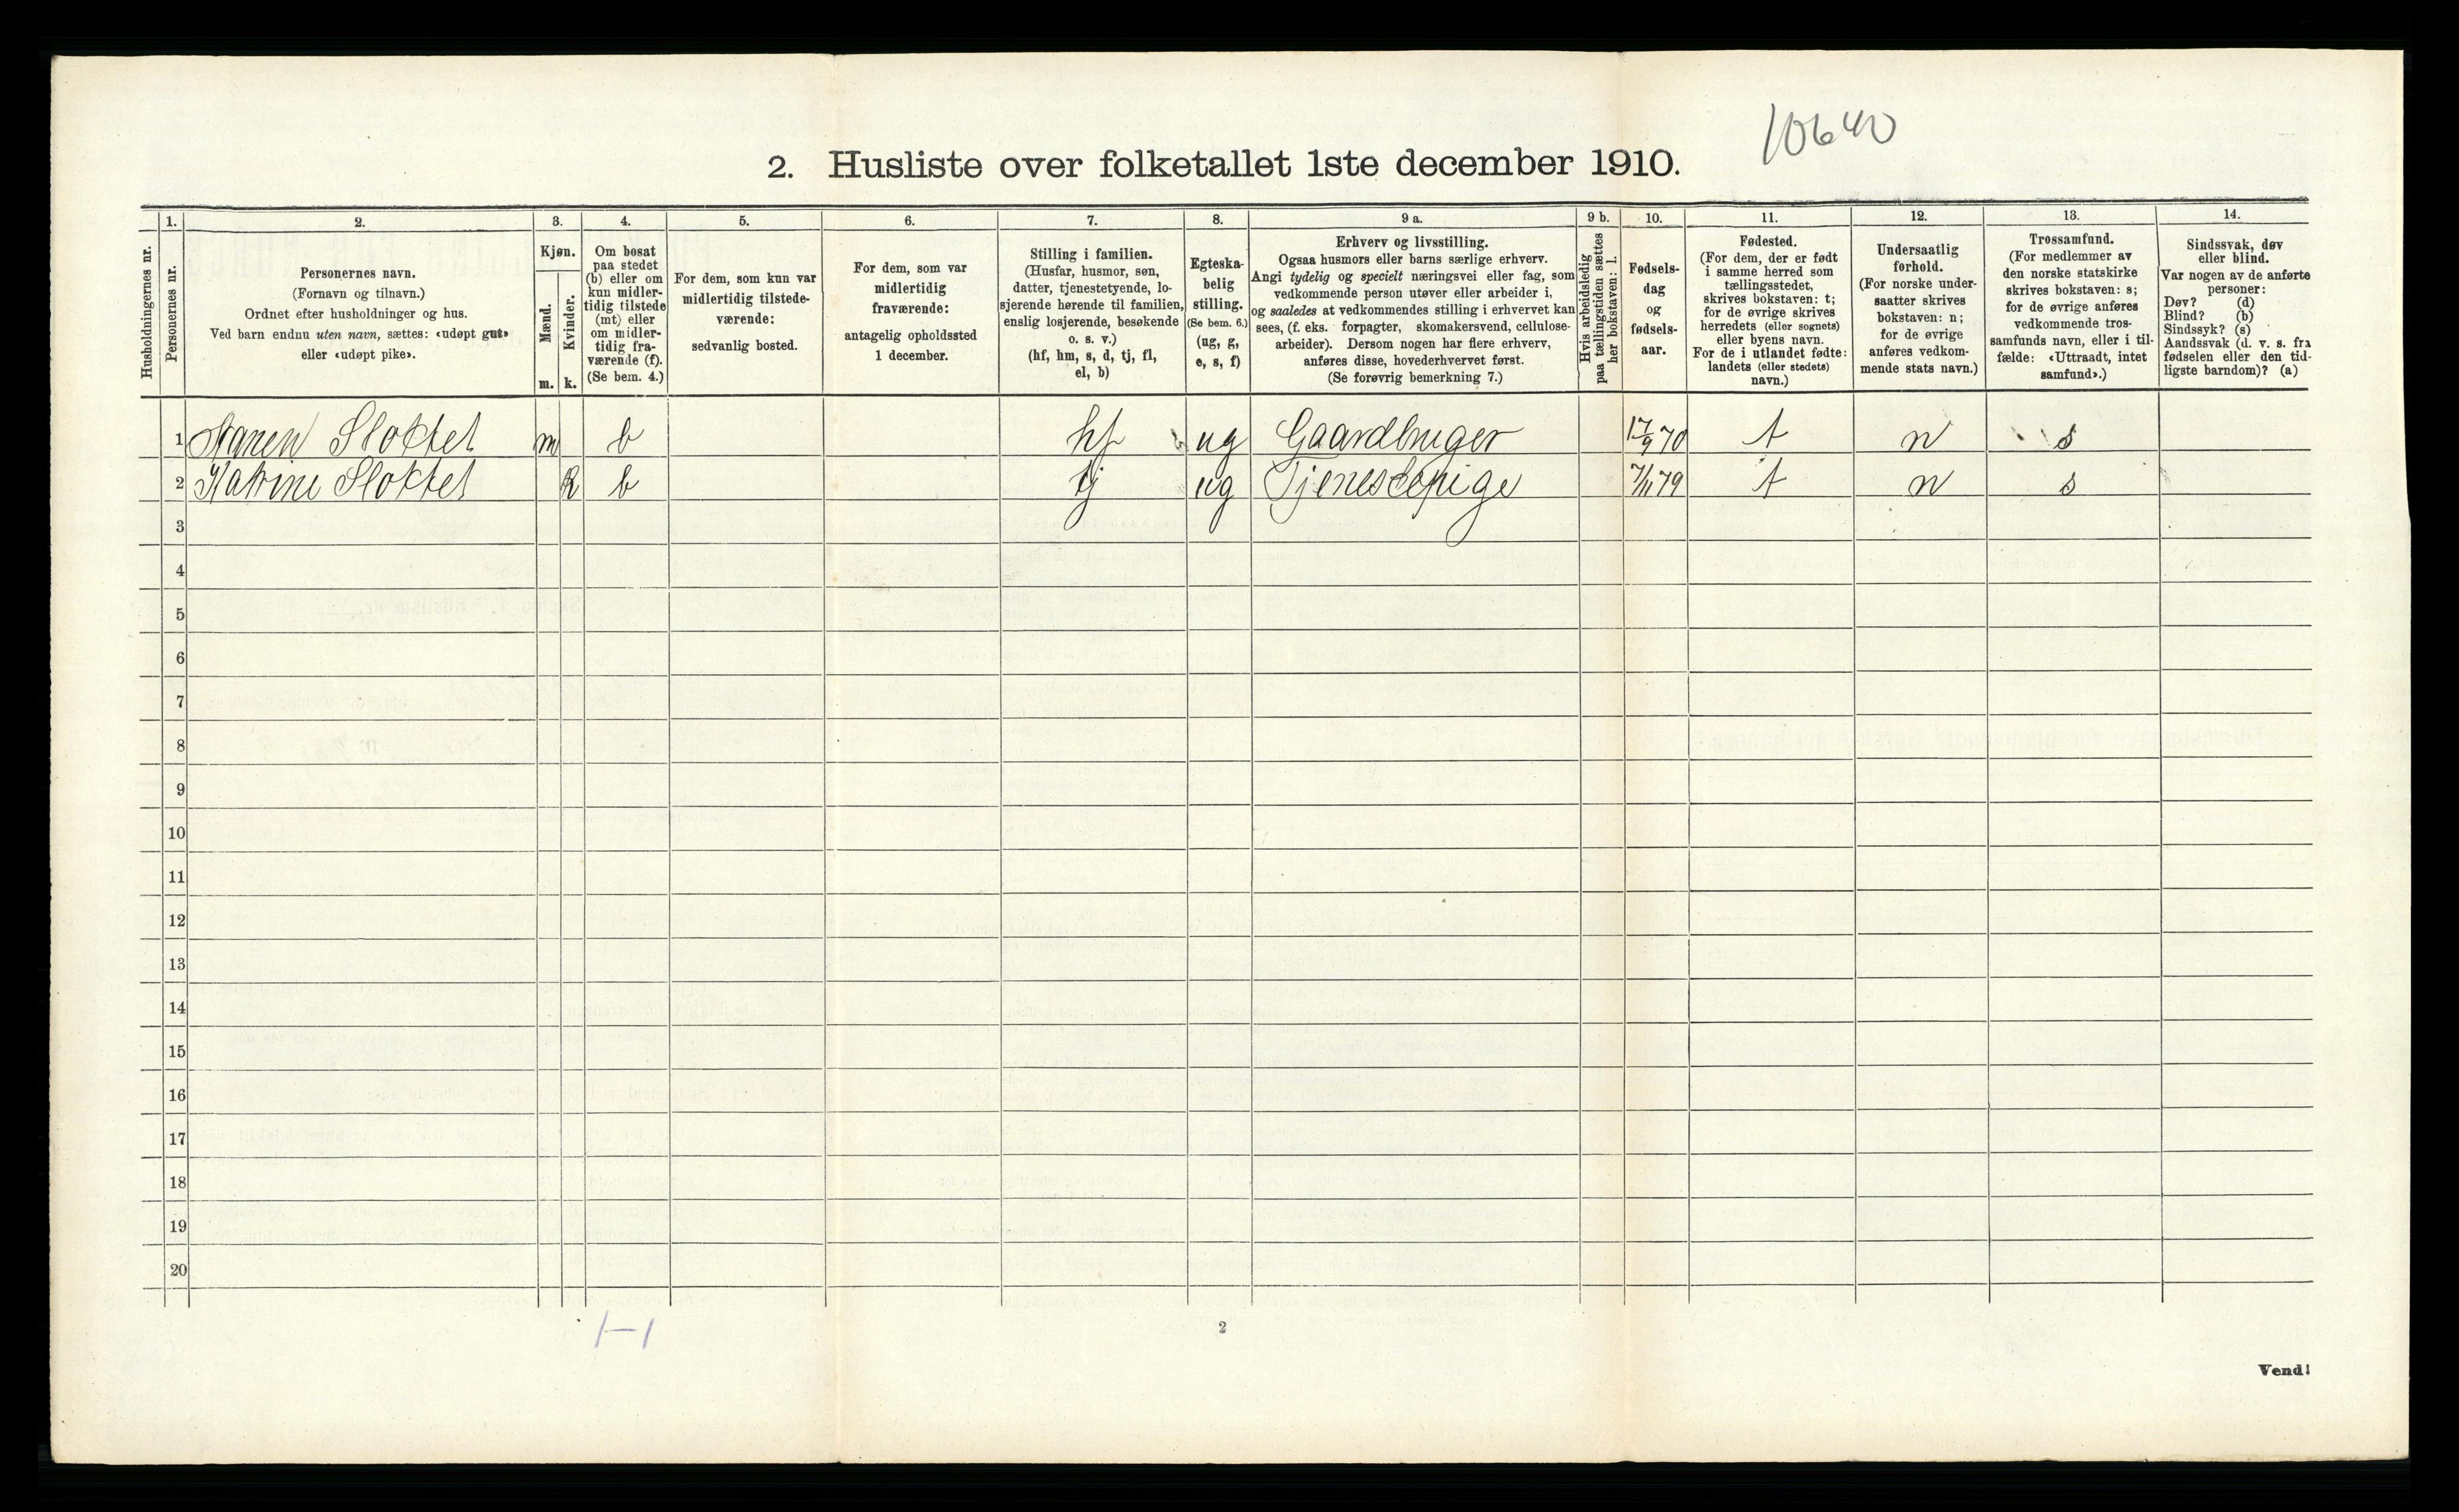 10640
2. Husliste over folketallet 1ste december 1910.
Husholdningernes nr.
1.
Personernes nr.
2.
Personernes navn.
(Fornavn og tilnavn.)
Ordnet efter husholdninger og hus.
Ved barn endnu uten navn, sættes: «udøpt gut»
eller «udøpt pike».
3.
Kjøn.
Mænd.
Kvinder.
m.
k.
4.
Om bosat
paa stedet
(b) eller om
kun midler-
tidig tilstede
(mt) eller
om midler-
tidig fra-
værende (f).
(Se bem. 4.)
5.
For dem, som kun var
midlertidig tilstede-
værende:
sedvanlig bosted.
6.
For dem, som var
midlertidig
fraværende:
antagelig opholdssted
1 december.
7.
Stilling i familien.
(Husfar, husmor, søn,
datter, tjenestetyende, lo-
sjerende hørende til familien,
enslig losjerende, besøkende
o. s. v.)
(hf, hm, s, d, tj, fl,
el, b)
8.
Egteska-
belig
stilling.
(Se bem. 6.)
(ug, g,
e, s, f)
9 a.
Erhverv og livsstilling.
Ogsaa husmors eller barns særlige erhverv.
Angi tydelig og specielt næringsvei eller fag, som
vedkommende person utøver eller arbeider i,
og saaledes at vedkommendes stilling i erhvervet kan
sees, (f. eks. forpagter, skomakersvend, cellulose-
arbeider). Dersom nogen har flere erhverv,
anføres disse, hovederhvervet først.
(Se forøvrig bemerkning 7.)
9 b.
Hvis arbeidsledig
paa tællingstiden sættes
her bokstaven: l.
10.
Fødsels-
dag
og
fødsels-
aar.
11.
Fødested.
(For dem, der er født
i samme herred som
tællingsstedet,
skrives bokstaven: t;
for de øvrige skrives
herredets (eller sognets)
eller byens navn.
For de i utlandet fødte:
landets (eller stedets)
navn.)
12.
Undersaatlig
forhold.
(For norske under-
saatter skrives
bokstaven: n;
for de øvrige
anføres vedkom-
mende stats navn.)
13.
Trossamfund.
(For medlemmer av
den norske statskirke
skrives bokstaven: s;
for de øvrige anføres
vedkommende tros-
samfunds navn, eller i til-
fælde: «Uttraadt, intet
samfund».)
14.
Sindssvak, døv
eller blind.
Var nogen av de anførte
personer:
Døv? (d)
Blind? (b)
Sindssyk? (s)
Aandssvak (d. v. s. fra
fødselen eller den tid-
ligste barndom)? (a)
1 Slottet m b hf ug Gaardbruger 17/9 70 t n s
2 Katrine Slottet k b tj ug Tjenestepige 7/11 79 t n s
3
4
5
6
7
8
9
10
11
12
13
14
15
16
17
18
19
20
1-1
2
Vend!